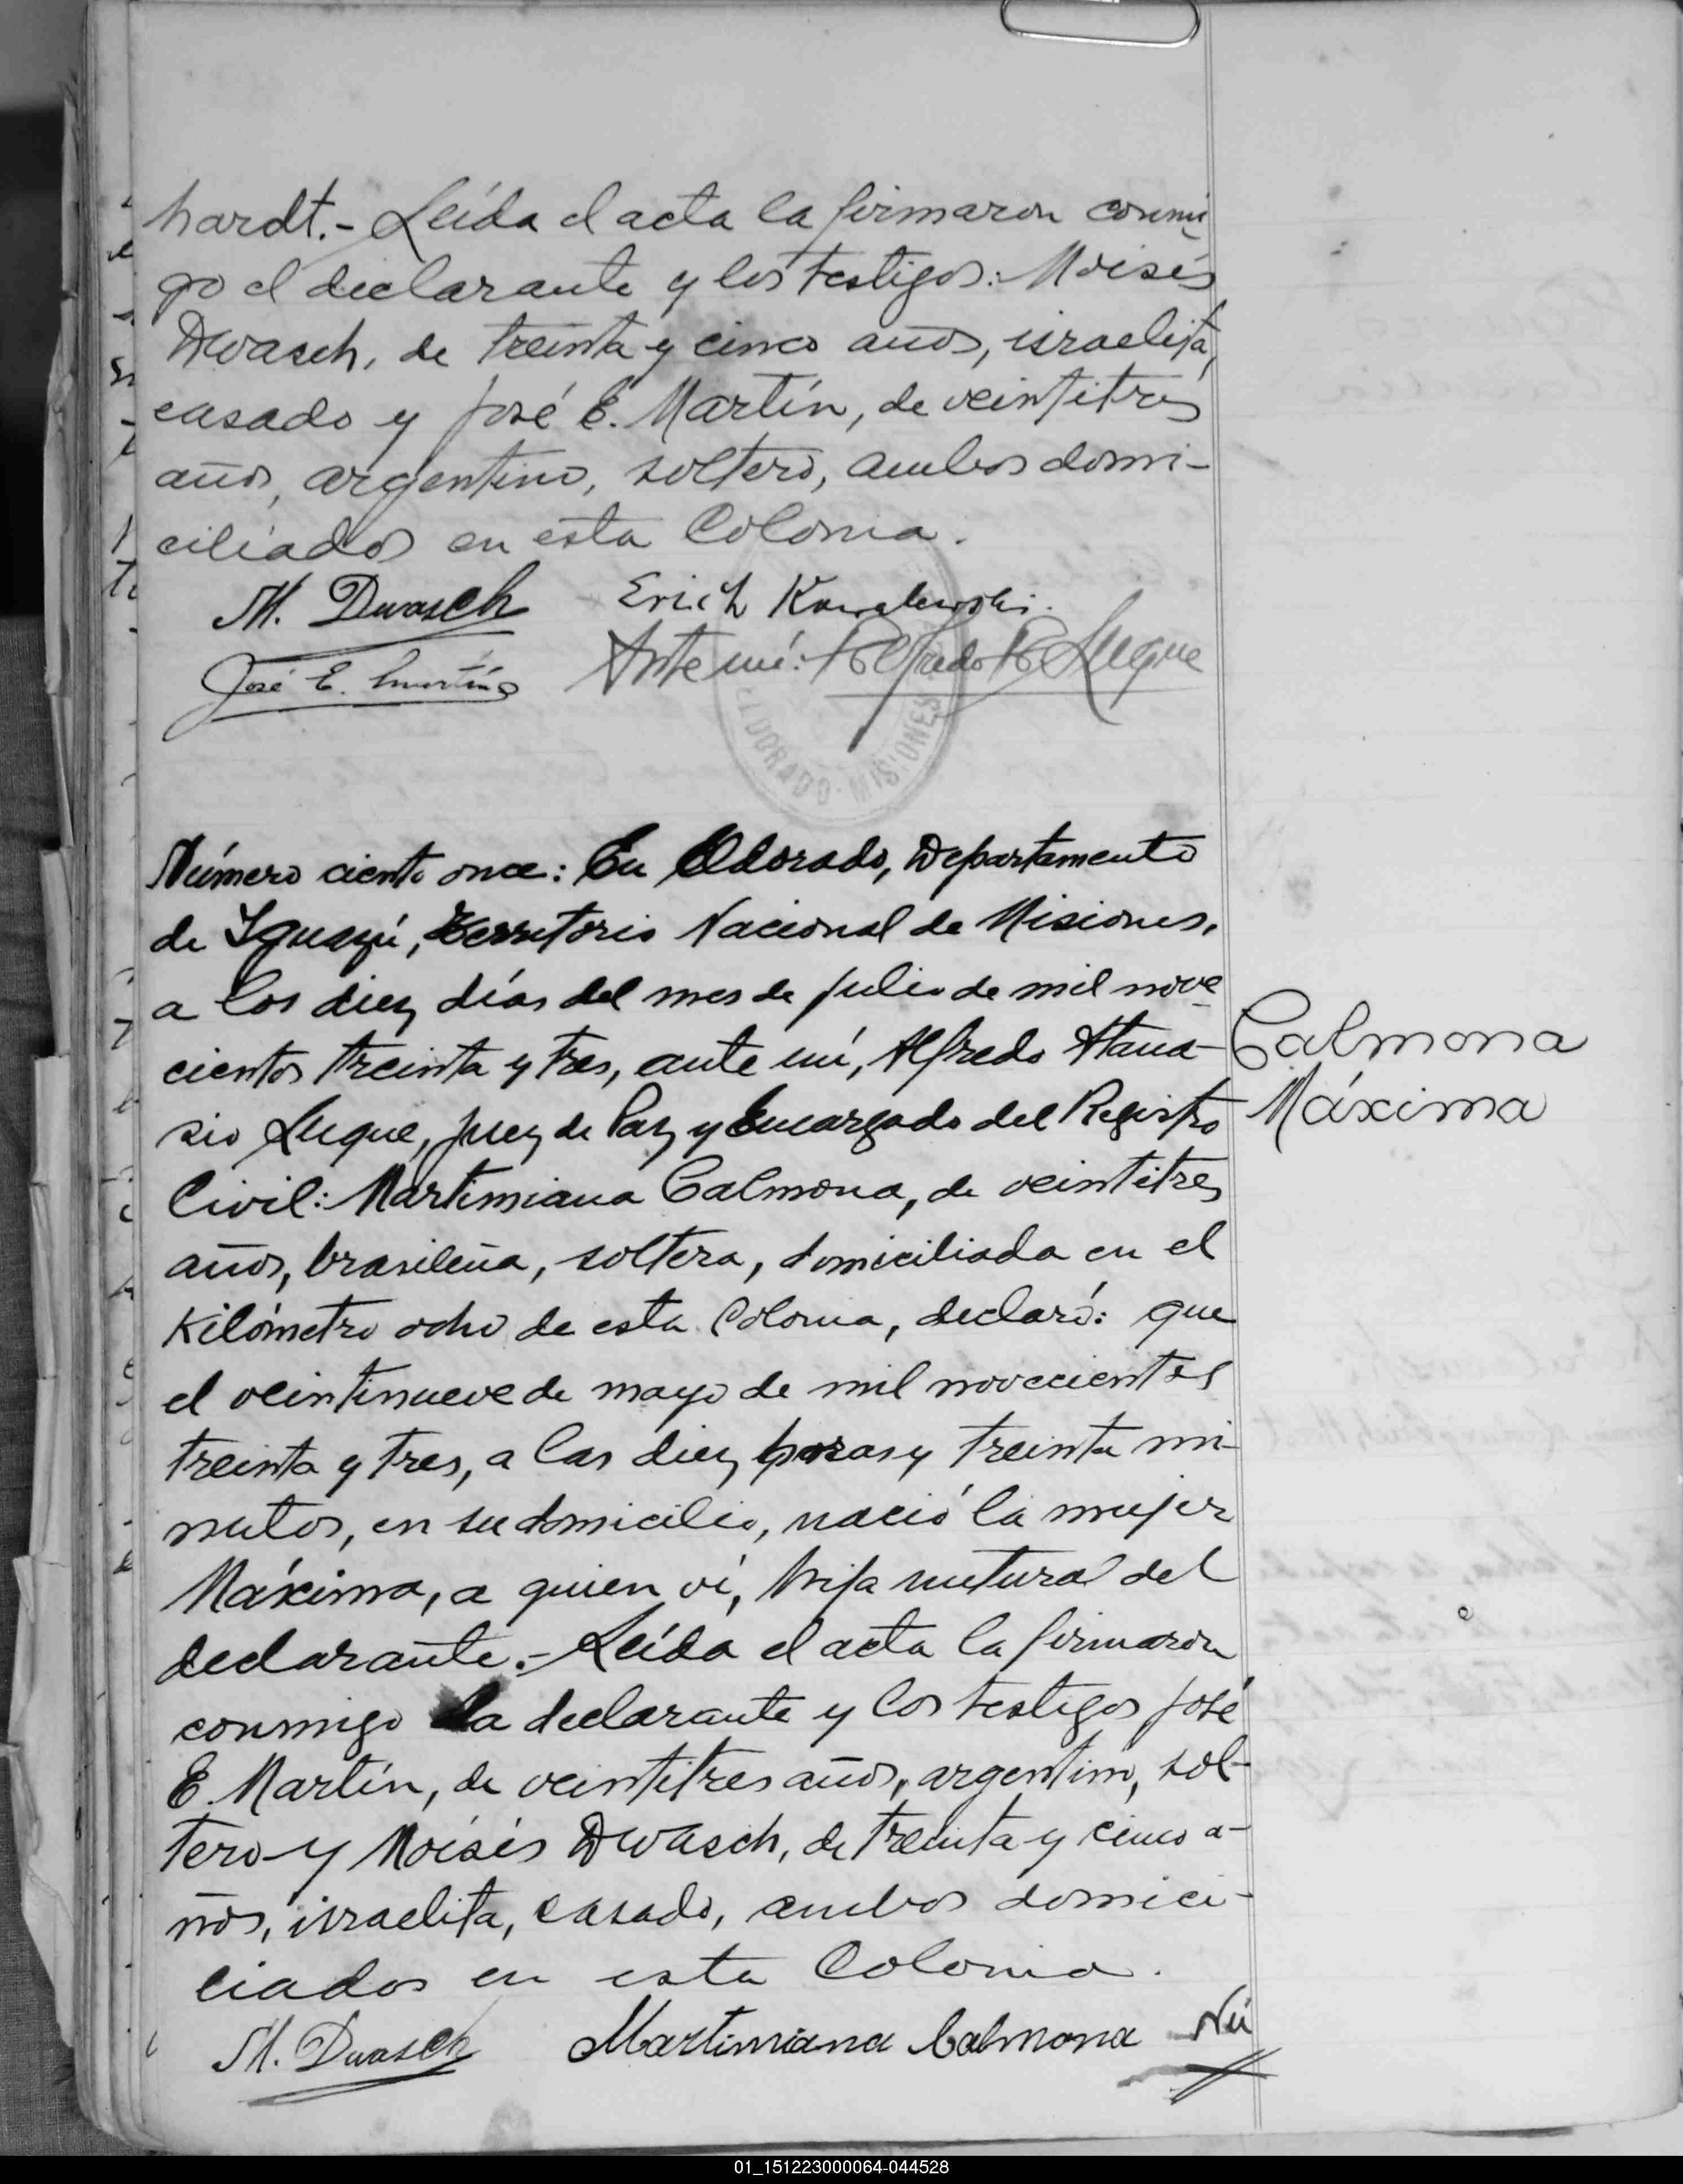 hardt.- Leída el acta la firmaron conmi-
go el declarante y los testigos: Moisés
Dwasch, de treinta y cinco años, israelita,
casado y José E. Martín, de veintitres
años, argentino, soltero, ambos domi-
ciliados en esta Colonia.
M. Dwasch Erich Kowalewski.
José E. Martín Ante mí: Alfredo A Luque
ELDORADO - MISIONES
Número ciento once: En Eldorado, Departamento
de Iguazú, Territorio Nacional de Misiones,
a los diez días del mes de julio de mil nove-
cientos treinta y tres, ante mí, Alfredo Atana-
sio Luque, Juez de Paz y Encargado del Registro
Civil: Martimiana Calmona, de veintitres
años, brasileña, soltera, domiciliada en el
Kilómetro ocho de esta Colonia, declaró: que
el veintinueve de mayo de mil novecientos
treinta y tres, a las diez horas y treinta mi-
nutos, en su domicilio, nació la mujer
Máxima, a quien ví, hija natural del
declarante.- Leída el acta la firmaron
conmigo la declarante y los testigos José
E. Martín, de veintitres años, argentino, sol-
tero y Moisés Dwasch, de treinta y cinco a-
ños, israelita, casado, ambos domici-
liados en esta Colonia.
M. Dwasch Martimiana Calmona
Calmona
Máxima
01_151223000064-044528